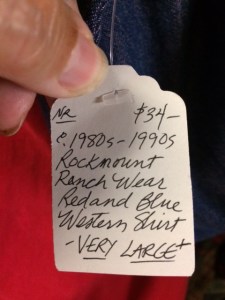 NR $34-
c. 1980s - 1990s
Rockmount
Ranch Wear
Red and Blue
Western Shirt
- VERY LARGE +